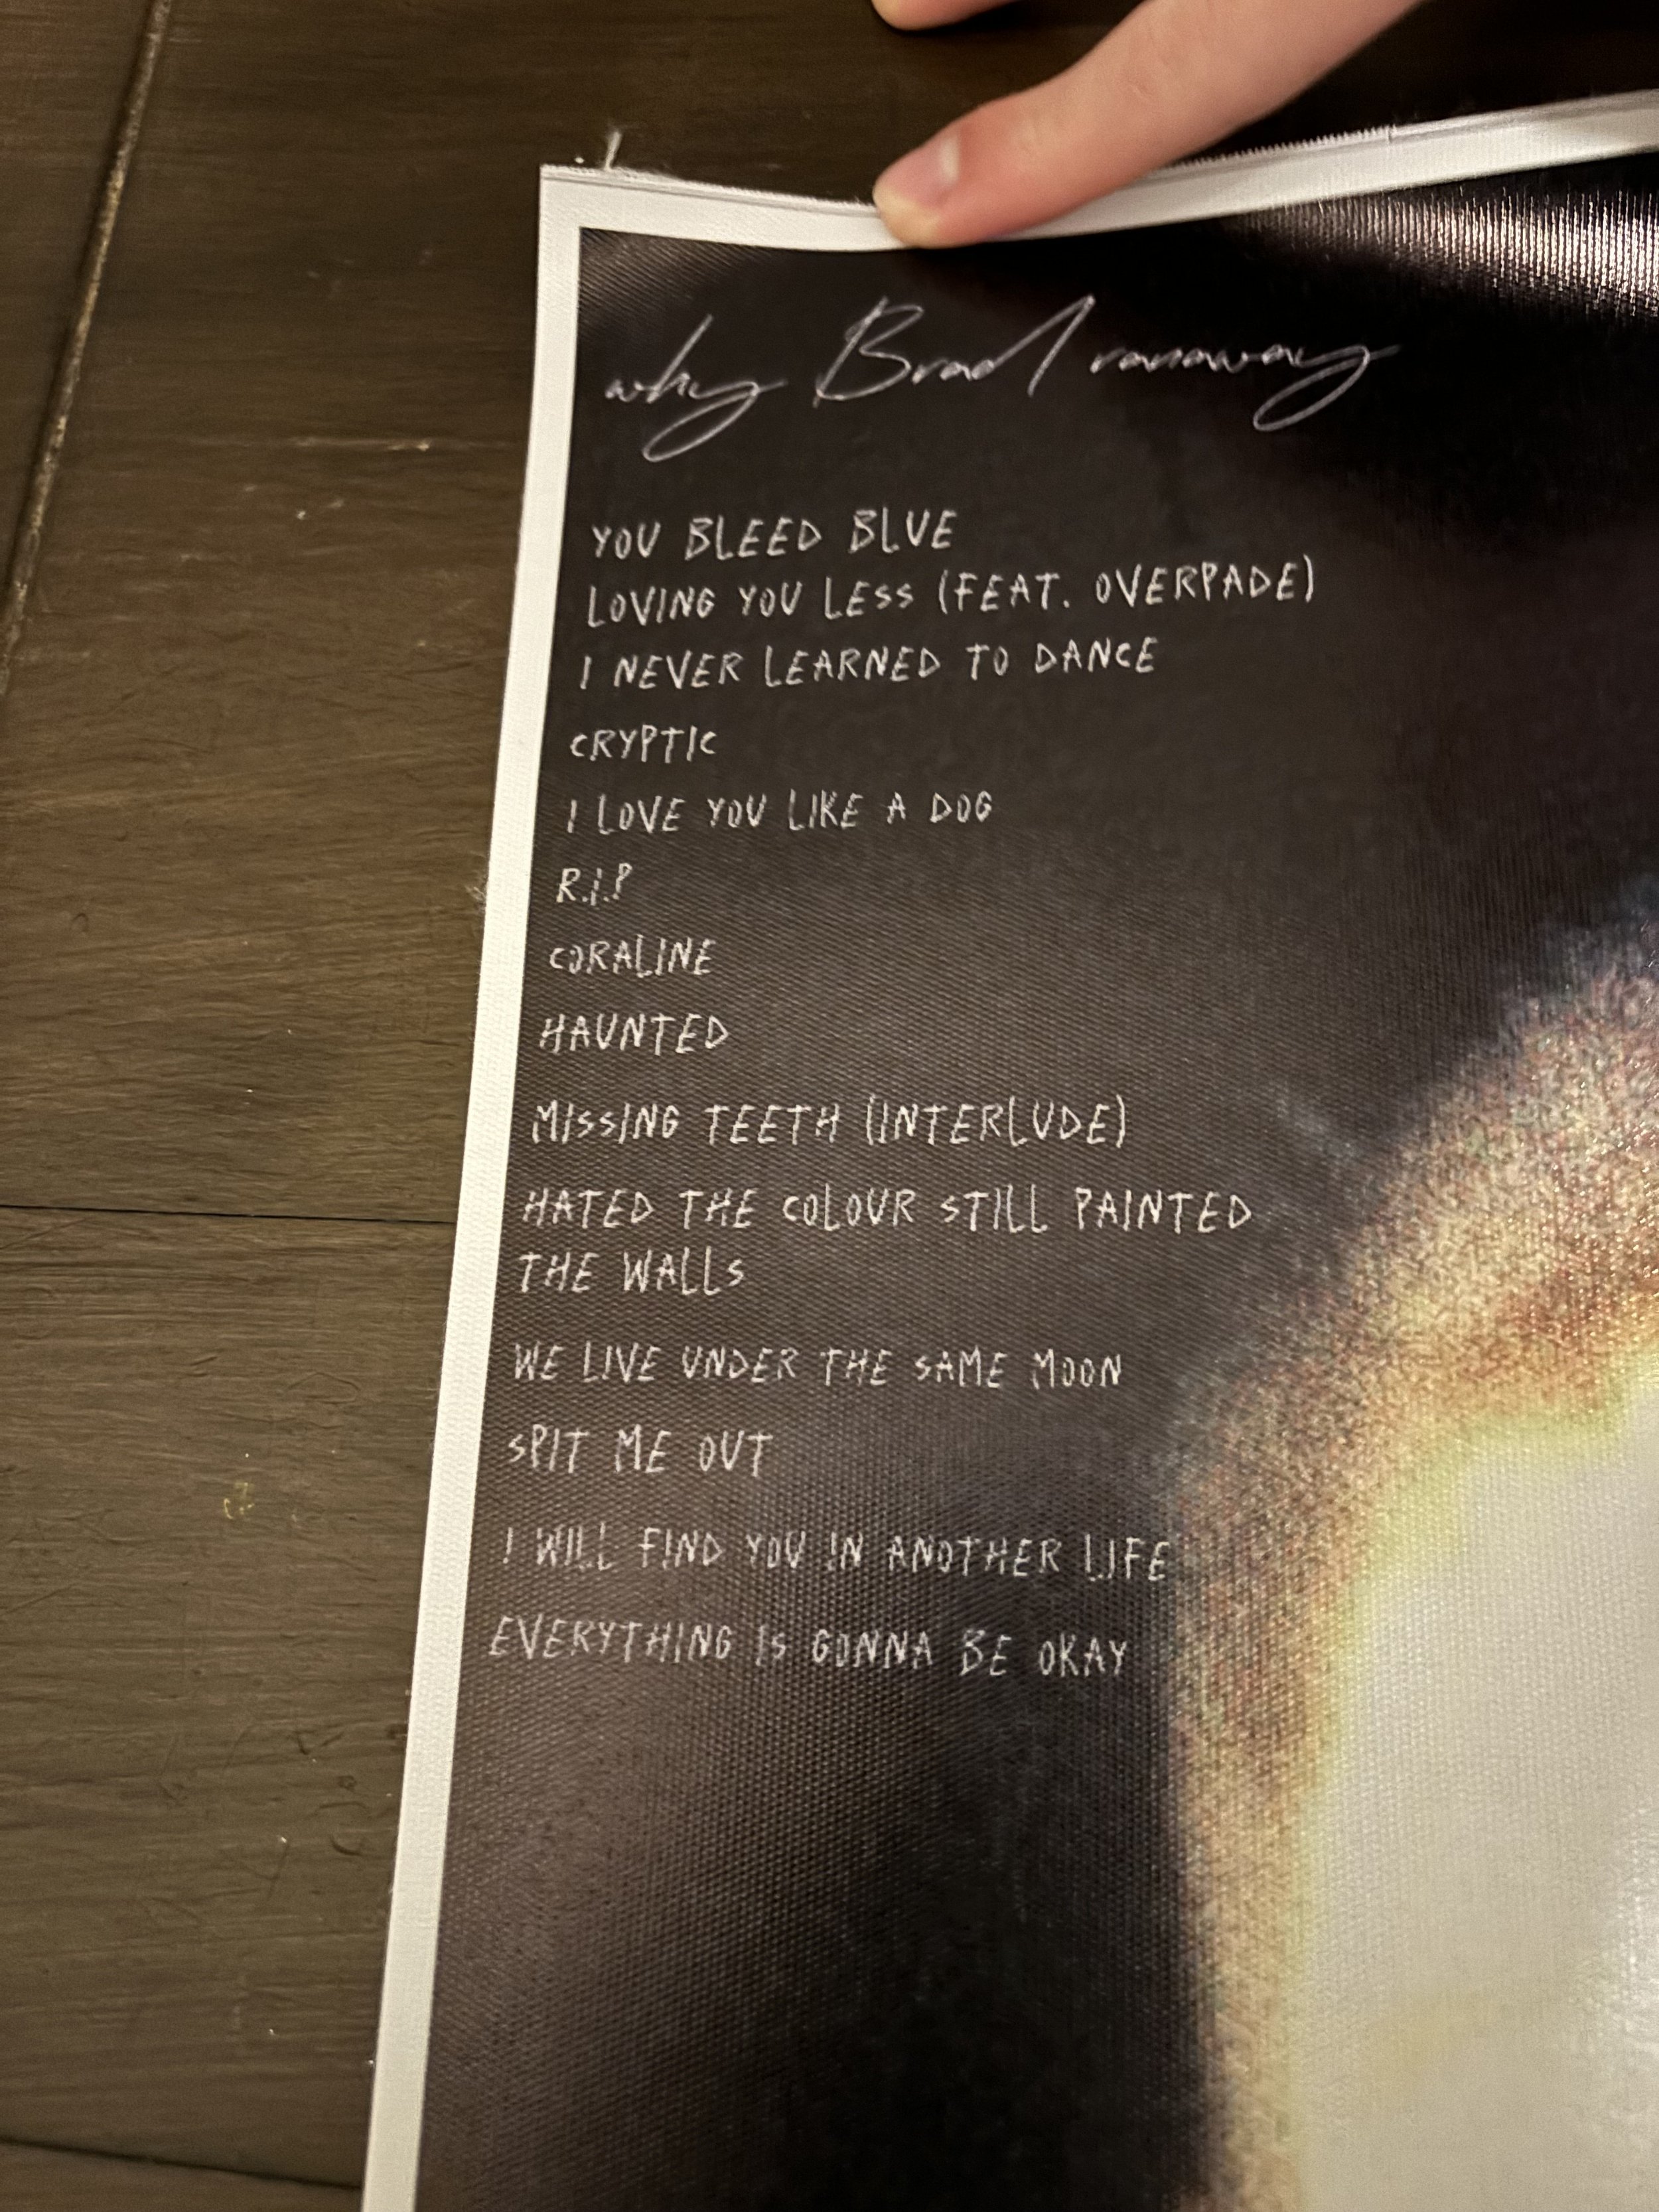 why Brad runaway
YOU BLEED BLUE
LOVING YOU LESS (FEAT. OVERPADE)
I NEVER LEARNED TO DANCE
CRYPTIC
I LOVE YOU LIKE A DOG
R.I.P
CORALINE
HAUNTED
MISSING TEETH (INTERLUDE)
HATED THE COLOUR STILL PAINTED
THE WALLS
WE LIVE UNDER THE SAME MOON
SPIT ME OUT
I WILL FIND YOU IN ANOTHER LIFE
EVERYTHING IS GONNA BE OKAY